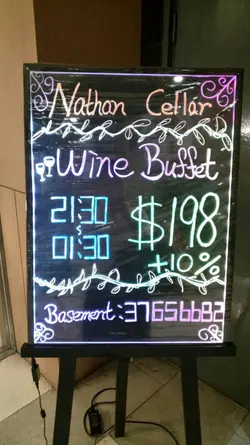 Nathan Cellar
Wine Buffet
21:30
$198
01:30
+10%
Basement:37656682